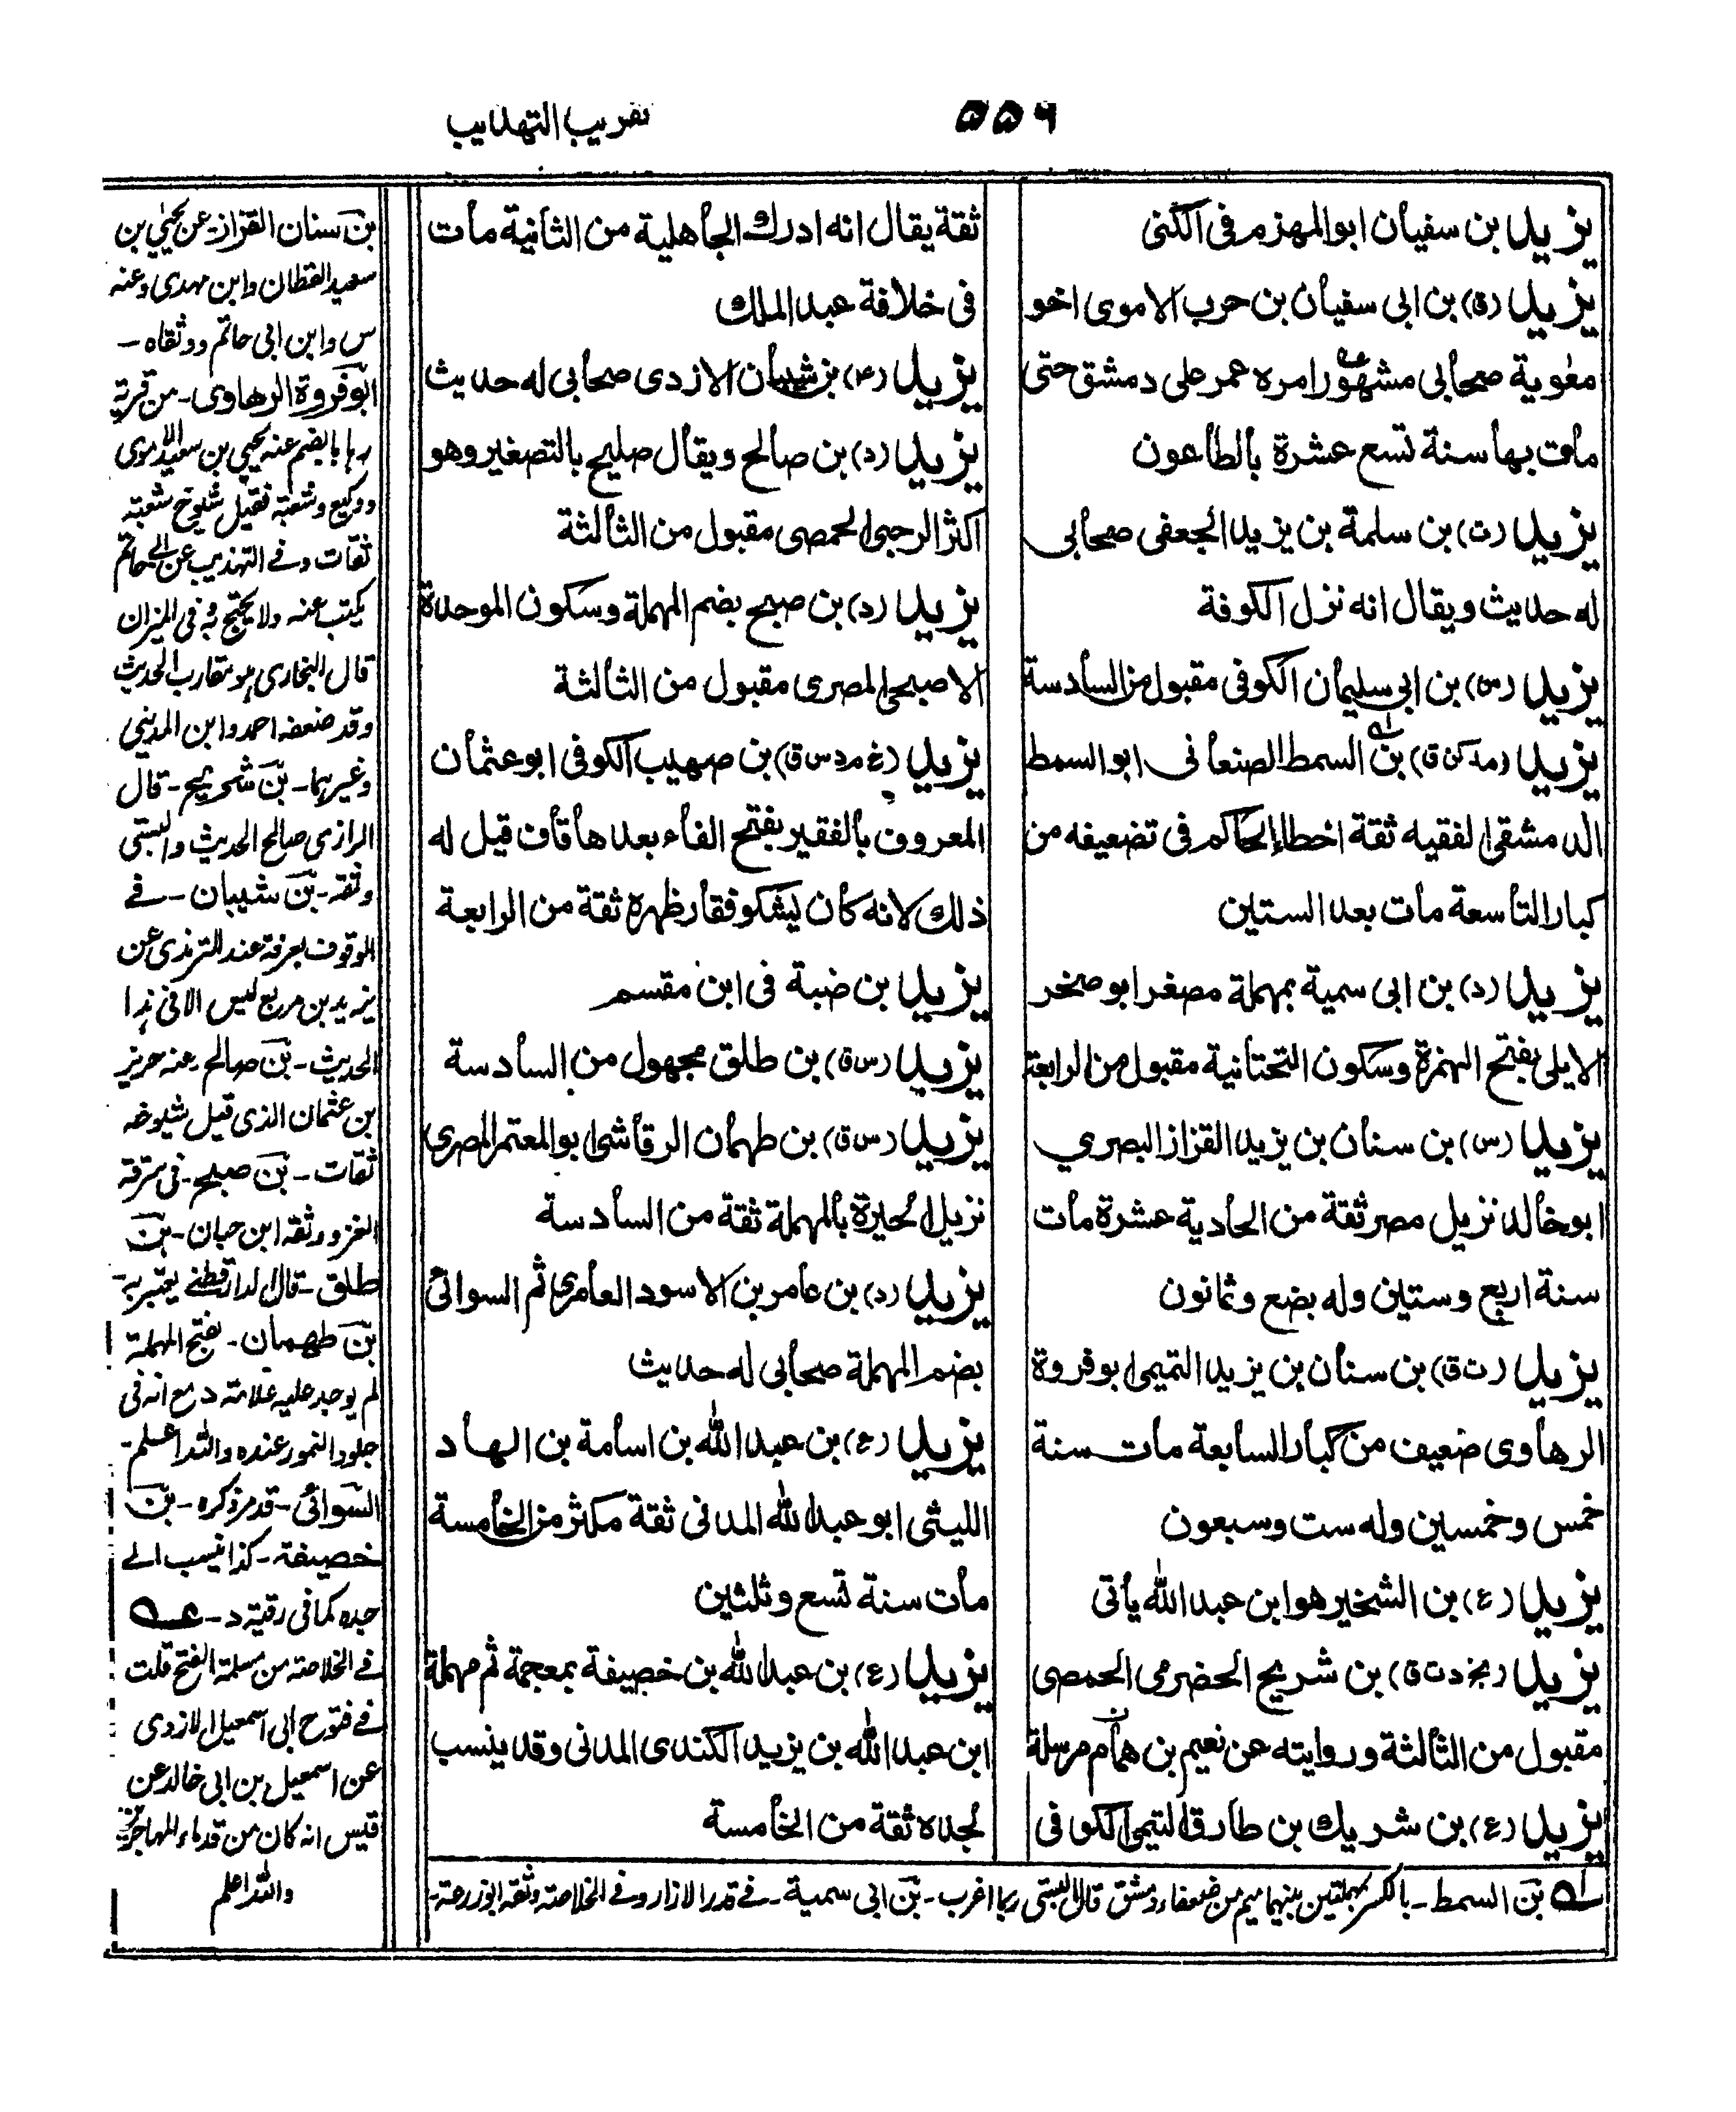 ٥٥٦
تقريب التهذيب
يزيد بن سفيان ابو المهزم فى الكنى
يزيد (ق) بن ابى سفيان بن حرب الاموى اخو
معوية صحابى مشهور امره عمر على دمشق حتى
مات بها سنة تسع عشرة بالطاعون
يزيد (ت) بن سلمة بن يزيد الجعفى صحابى
له حديث ويقال انه نزل الكوفة
يزيد (س) بن ابى سليمان الكوفى مقبول من السادسة
يزيد (مد كن ق) بن السمط الصنعانى ابو السمط
الدمشقى الفقيه ثقة اخطا الحاكم فى تضعيفه من
كبار التاسعة مات بعد الستين
يزيد (د) بن ابى سمية بمهملة مصغر ابو صخر
الايلى بفتح الهمزة وسكون التحتانية مقبول من الرابعة
يزيد (س) بن سنان بن يزيد القزاز البصري
ابو خالد نزيل مصر ثقة من الحادية عشرة مات
سنة اربع وستين وله بضع وثمانون
يزيد (ت ق) بن سنان بن يزيد التميمى ابو فروة
الرهاوى ضعيف من كبار السابعة مات سنة
خمس وخمسين وله ست وسبعون
يزيد (ع) بن الشخير هو ابن عبد الله يأتى
يزيد (بخ د ت ق) بن شريح الحضرمى الحمصى
مقبول من الثالثة وروايته عن نعيم بن همام مرسلة
يزيد (ع) بن شريك بن طارق التيمى الكوفى
ثقة يقال انه ادرك الجاهلية من الثانية مات
فى خلافة عبد الملك
يزيد (٤) بن شيبان الازدى صحابى له حديث
يزيد (د) بن صالح ويقال صليح بالتصغير وهو
اكثر الرحبى الحمصى مقبول من الثالثة
يزيد (د) بن صبح بضم المهملة وسكون الموحدة
الاصبحى المصرى مقبول من الثالثة
يزيد (خ م د س ق) بن صهيب الكوفى ابو عثمان
المعروف بالفقير بفتح الفاء بعدها قاف قيل له
ذلك لانه كان يشكو فقار ظهره ثقة من الرابعة
يزيد بن ضبة فى ابن مقسم
يزيد (س ق) بن طلق مجهول من السادسة
يزيد (س ق) بن طهمان الرقاشى ابو المعتمر المصرى
نزيل الحيرة بالمهملة ثقة من السادسة
يزيد (د) بن عامر بن الاسود العامرى ثم السوائى
بضم المهملة صحابى له حديث
يزيد (ع) بن عبد الله بن اسامة بن الهاد
الليثى ابو عبد الله المدنى ثقة مكثر من الخامسة
مات سنة تسع وثلثين
يزيد (ع) بن عبد الله بن خصيفة بمعجمة ثم مهملة
ابن عبد الله بن يزيد الكندى المدنى وقد ينسب
لجده ثقة من الخامسة
بن سنان القزاز عن يحيى بن
سعيد القطان وابن مهدى وعنه
س وابن ابى حاتم ووثقاه -
ابو فروة الرهاوى - من قرية
رها بالضم عنه يحيى بن سعيد الاموى
ووكيع وشعبة فقيل شيوخ شعبة
ثقات وفے التهذيب عن ابى حاتم
يكتب عنه ولا يحتج به فى الميزان
قال البخارى هو مقارب الحديث
وقد ضعفه احمد وابن المدينى
وغيرهما - بن شريح - قال
الرازى صالح الحديث والبستى
وثقه - بن شيبان - فے
الوقوف بعرفة عند الترمذى عن
يزيد بن مربع ليس الا فى هذا
الحديث - بن صالح عنه حريز
بن عثمان الذى قيل شيوخه
ثقات - بن صبح - فى سرقة
الغزو وثقه ابن حبان - بن
طلق - قال الدارقطنے يعتبر به
بن طهمان - بفتح المهملة
لم يوجد عليه علامة د مع انه فى
جلود النمور عنده والله اعلم -
السوائى - قد مر ذكره - بن
خصيفة - كذا نسب الے
جده كما فى رقية د - عه
فے الخلاصة من مسلمة الفتح قلت
فے فتوح ابى اسمعيل الازدى
عن اسمعيل بن ابى خالد عن
قيس انه كان من قدماء المهاجرين
والله اعلم
له بن السمط - بالكسر بمهملتين بينهما ميم من ضعفاء دمشق قال البستى ربما اغرب - بن ابى سمية - فے قدر الازار وفے الخلاصة وثقه ابو زرعة -